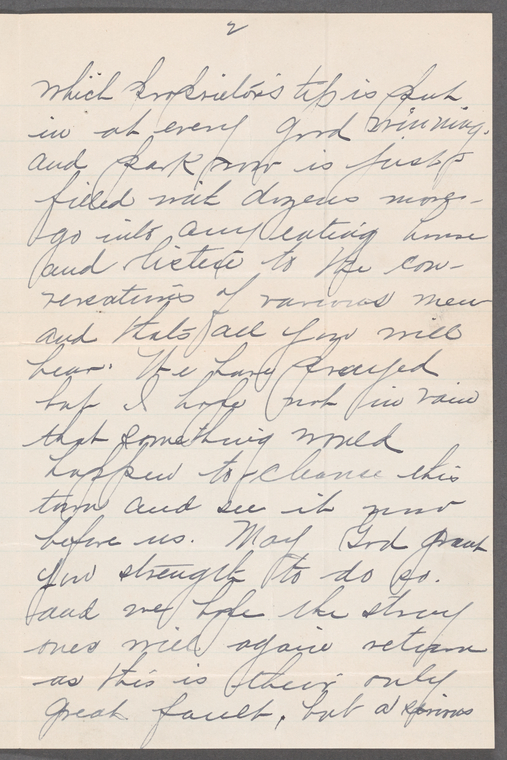 2
which proprietor's tip is put
in at every good winning.
and park row is just
filled with dozens more -
go into any eating house
and listen to the con-
versations of various men
and thats all you will
hear. We have prayed
but I hope not in vain
that something would
happen to cleanse this
town and see it now
before us. May God grant
you strength to do so.
and we hope the stray
ones will again return
as this is their only
great fault, but a serious